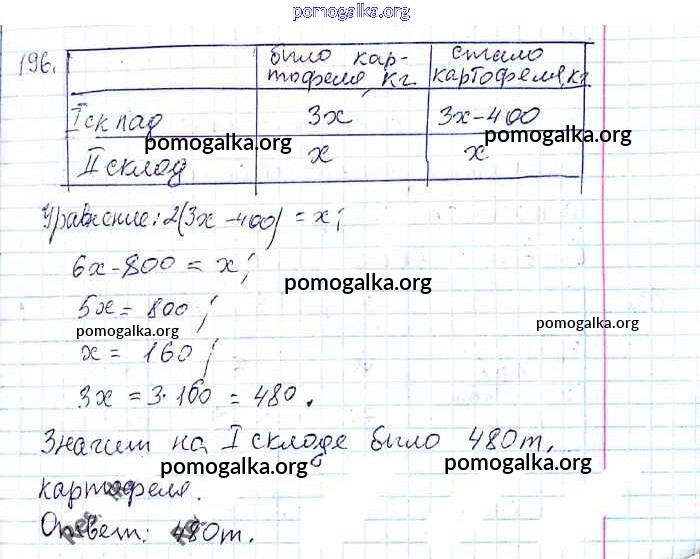 pomogalka.org
196.
было кар- стало
тофеля, кг картофеля, кг
I склад 3x 3x-400
pomogalka.org pomogalka.org
II склад x x
Уравнение: 2(3x-400) = x;
6x-800 = x;
pomogalka.org
5x = 800;
pomogalka.org pomogalka.org
x = 160;
3x = 3·160 = 480.
Значит на I складе было 480т.
pomogalka.org pomogalka.org
картофеля.
Ответ: 480т.